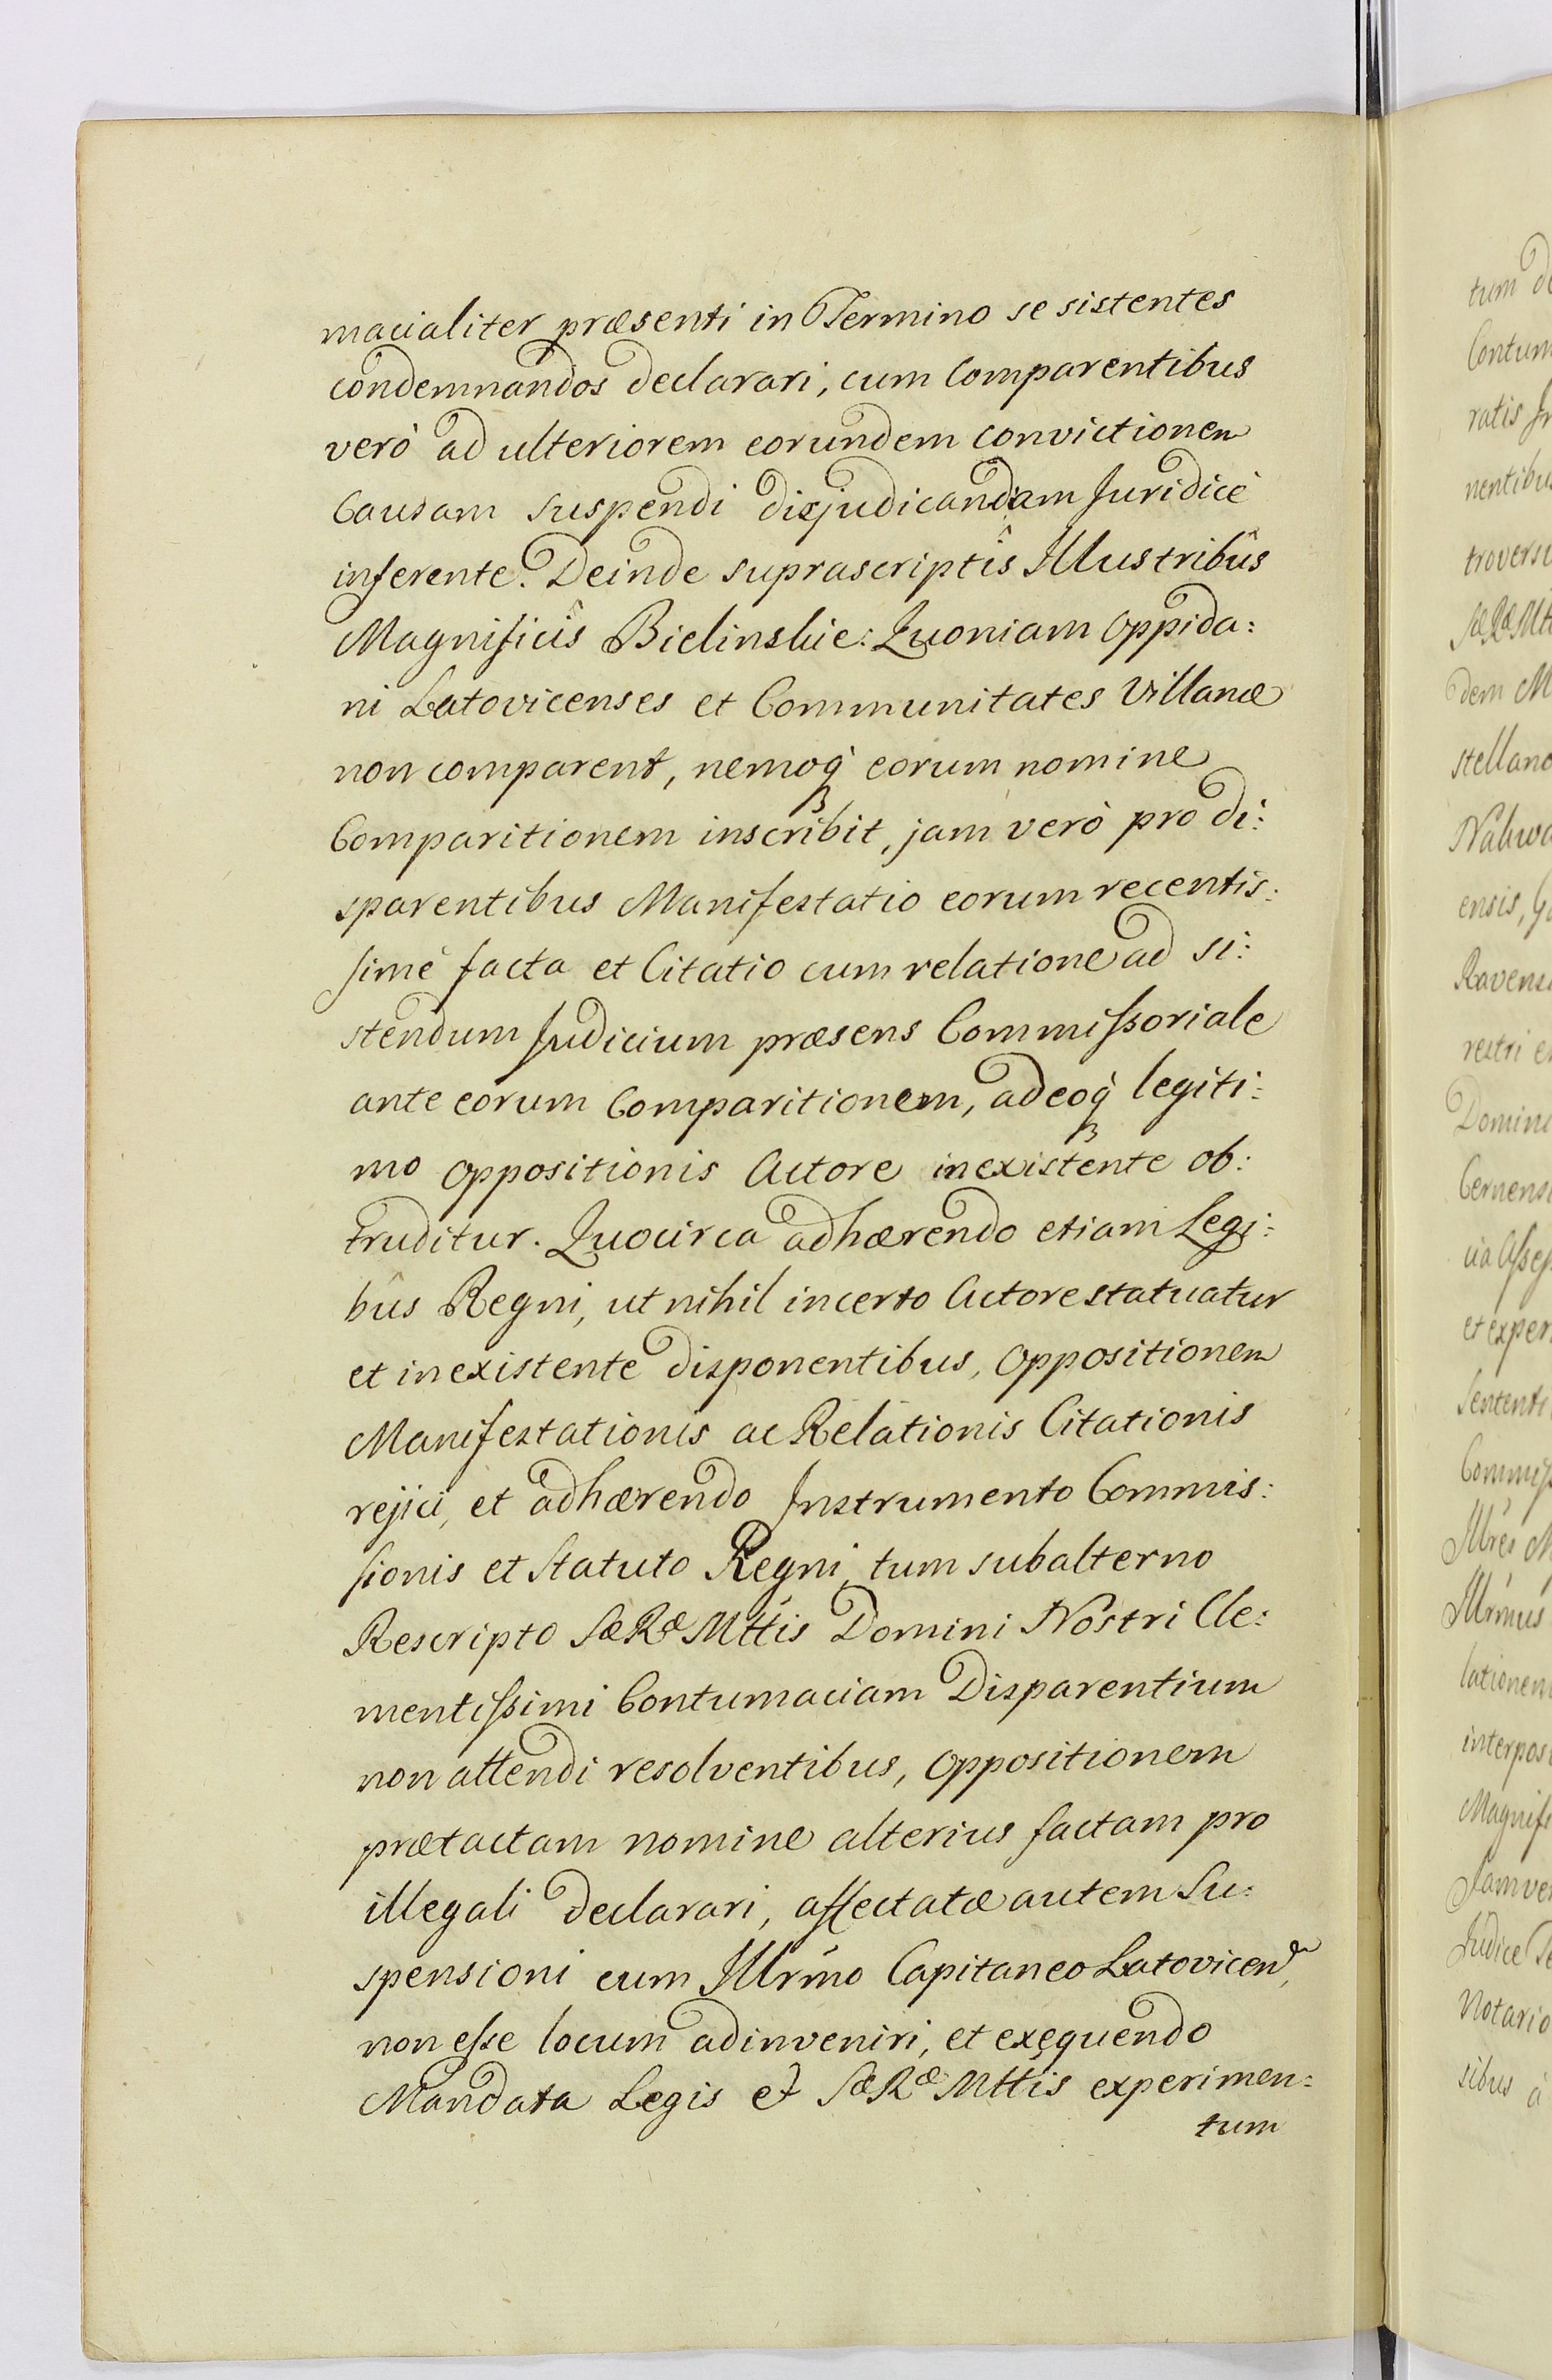 macialiter præsenti in Termino se sistentes
condemnandos declarari, cum Comparentibus
verò ad ulteriorem eorundem convictionem
Causam suspendi disjudicandam Juridicè
inferente. Deinde suprascriptîs Illustribûs
Magnificîs Bielinskie: Quoniam Oppida:
ni Latovicenses et Communitates Villanæ
non comparent, nemoq̀ eorum nomine
Comparitionem inscribit, jam verò pro di:
sparentibus Manifestatio eorum recentis:
simè facta et Citatio cum relatione ad si:
stendum Judicium præsens Commissoriale
ante eorum Comparitionem, adeoq̀ legiti:
mo Oppositionis Actore inexistente ob:
truditur. Quocirca adhærendo etiam Legi:
bûs Regni, ut nihil incerto Actore statuatur
et inexistente disponentibus, Oppositionem
Manifestationis ac Relationis Citationis
rejici, et adhærendo Instrumento Commis:
sionis et Statuto Regni, tum subalterno
Rescripto SæRæ Mttis Domini Nostri Cle:
mentissimi Contumaciam Disparentium
non attendi resolventibus, Oppositionem
prætactam nomine alterius factam pro
illegali declarari, affectatæ autem Su:
spensioni cum Illrmo Capitaneo Latovicen,
non esse locum adinveniri, et exequendo
Mandata Legis et SæRæ Mttis experimen:
tum
tum de
Contum
ratis
nentibus
troversi
SæRæMtt
dem M
stellano
Nakwa
ensis, G
Ravens
restri e
Domini
Cernens
cia Asses
et exper
Sententi
Commiss
Illres M
Illrmus
lationem
interposi
Magnifi
Jam ver
Judice Te
Notario
sibus à